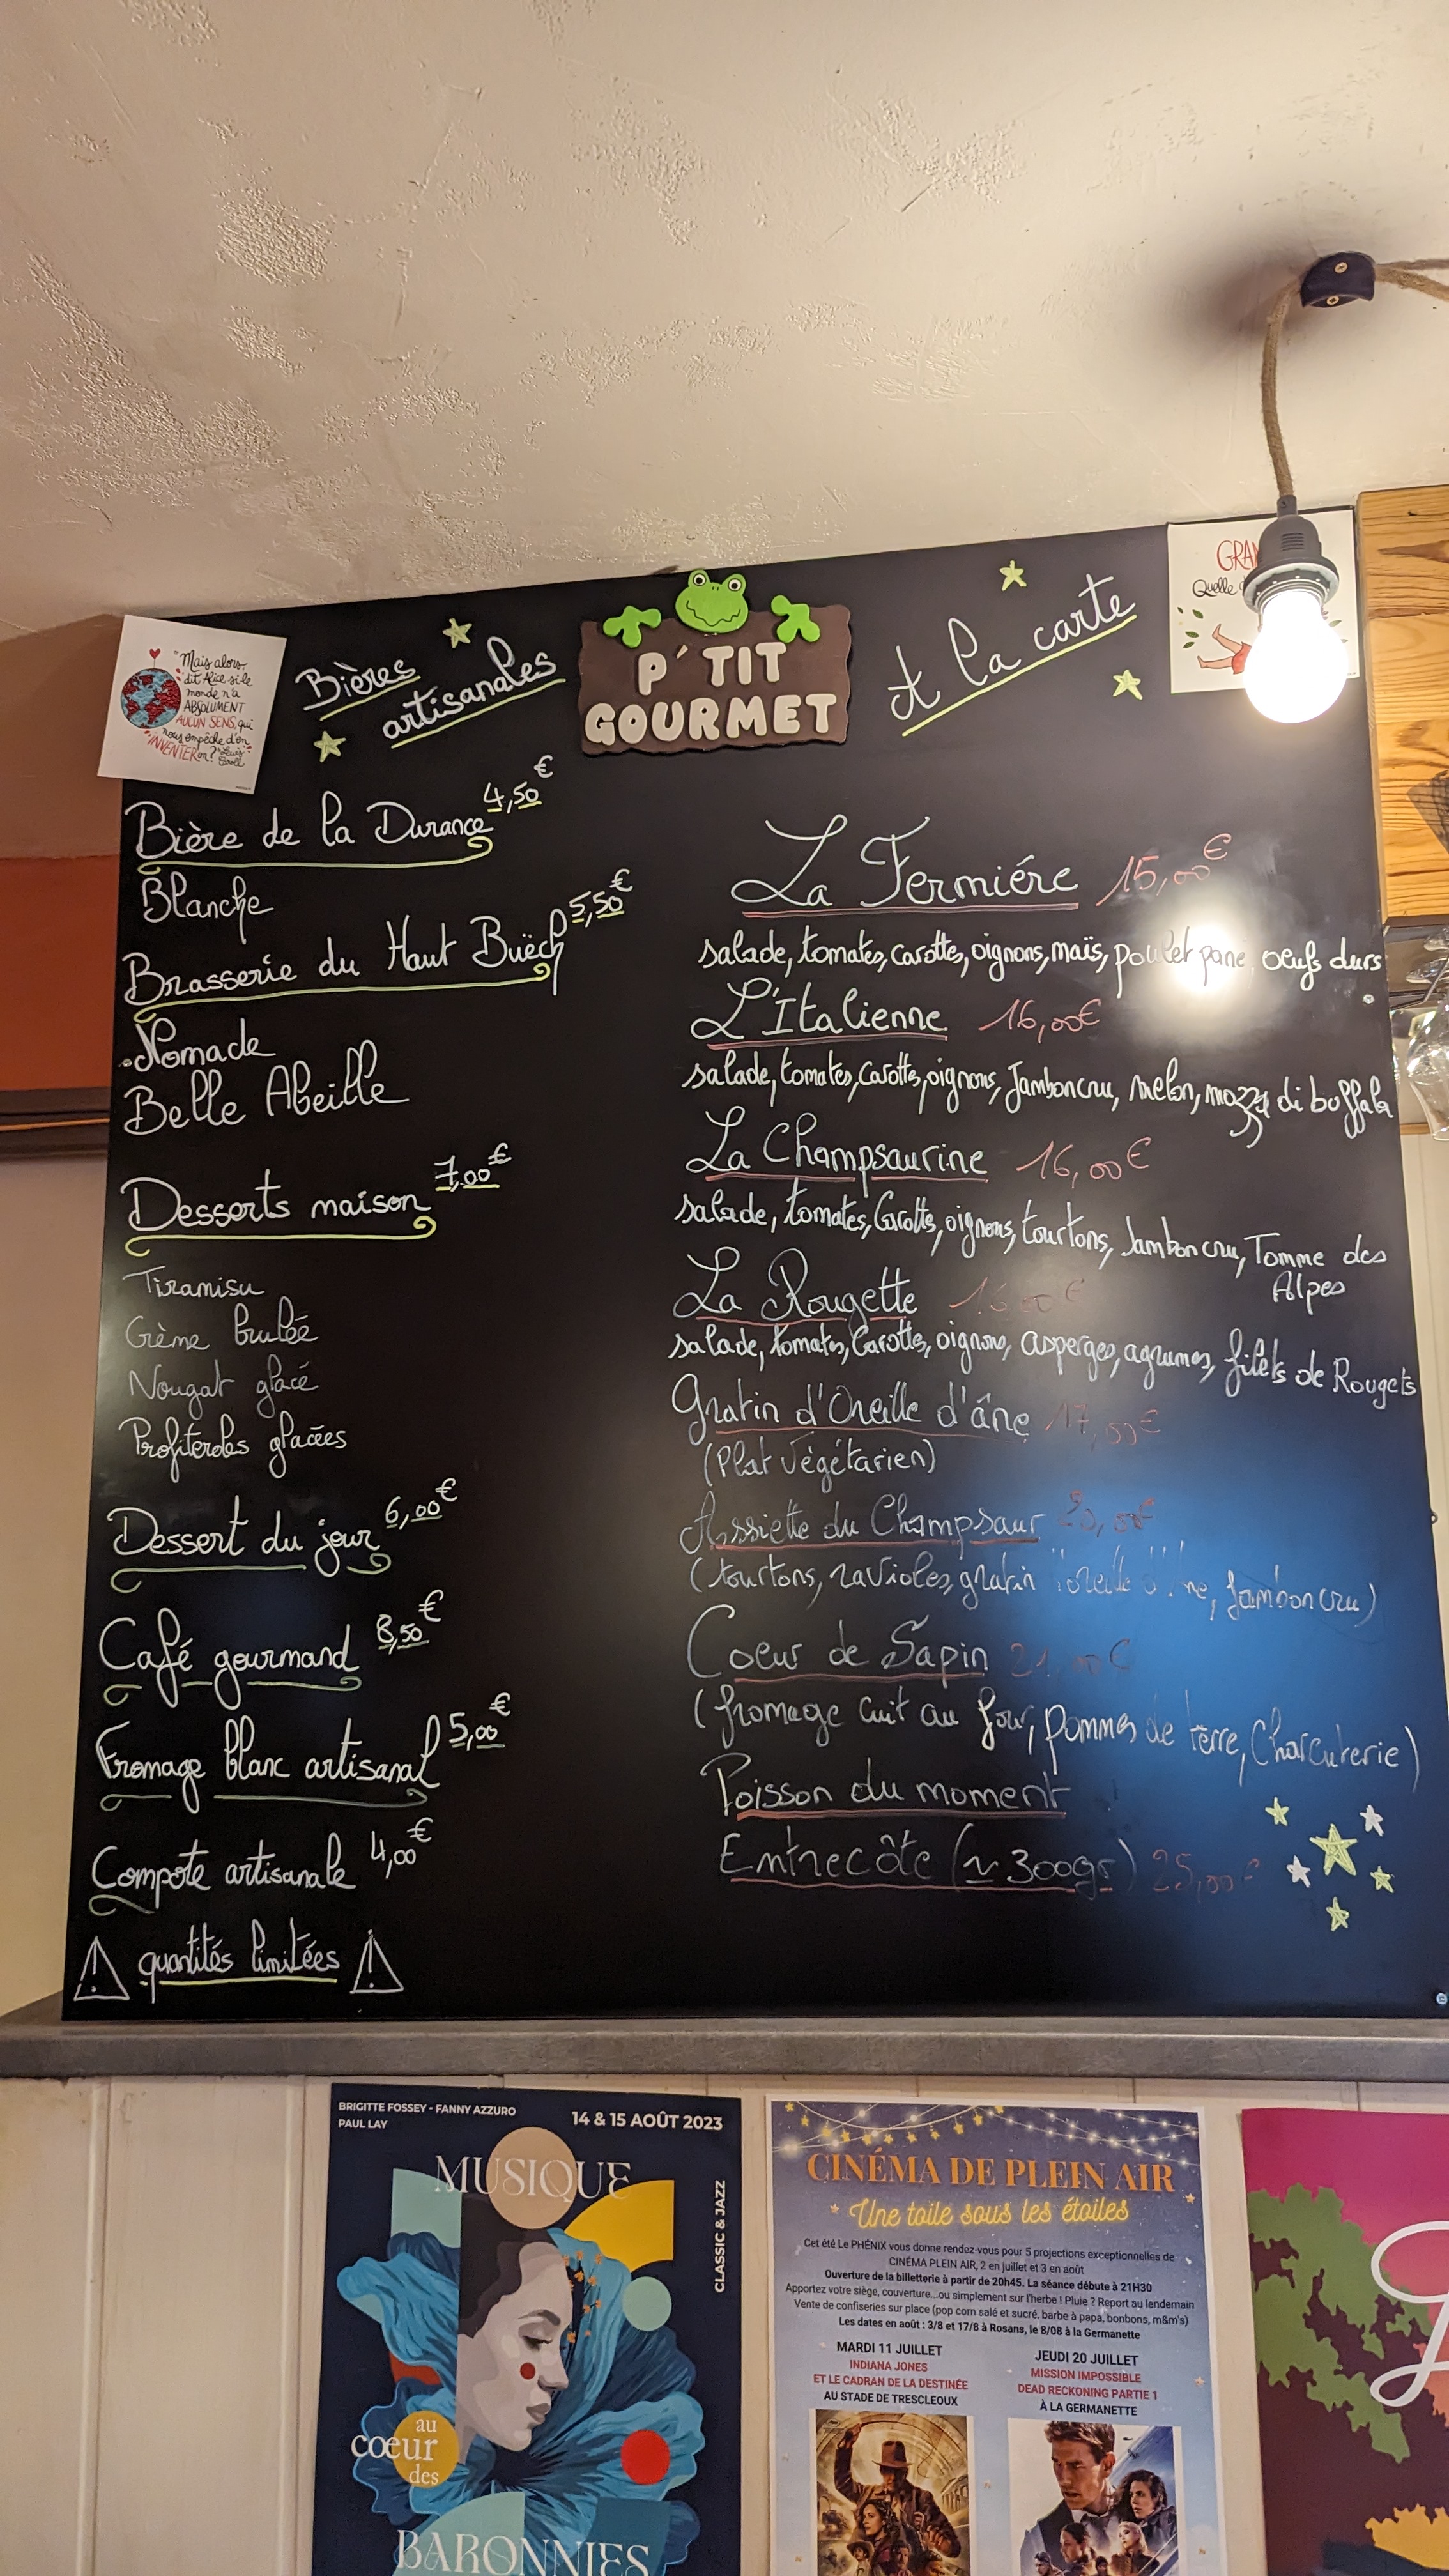 "Mais alors,
dit Alice, si le
monde n'a
ABSOLUMENT
AUCUN SENS, qui
nous empêche d'en
INVENTER un?"
Lewis
Carroll
Bières
artisanales
P'TIT
GOURMET
A la carte
GRAN
Quelle
Bière de la Durance 4,50€
Blanche
Brasserie du Haut Buëch 5,50€
Nomade
Belle Abeille
Desserts maison 7,00€
Tiramisu
Crème brulée
Nougat glacé
Profiteroles glacées
Dessert du jour 6,00€
Café gourmand 8,50€
Fromage blanc artisanal 5,00€
Compote artisanale 4,00€
quantités limitées
La Fermiére 15,00€
salade, tomates, carotte, oignons, maïs, poulet pané, oeufs durs
L'Italienne 16,00€
salade, tomates, carotte, oignons, Jambon cru, melon, mozza di buffala
La Champsaurine 16,00€
salade, tomates, Carotte, oignons, tourtons, Jambon cru, Tomme des
Alpes
La Rougette €
salade, tomates, Carotte, oignons, asperges, agrumes, filets de Rougets
Gratin d'Oreille d'âne 17,00€
(Plat Végétarien)
Assiette du Champsaur 20,00€
(tourtons, ravioles, gratin d'oreille d'âne, Jambon cru)
Coeur de Sapin 21,00€
(fromage cuit au four, pommes de terre, Charcuterie)
Poisson du moment
Entrecôte (~ 300gr) 25,00€
BRIGITTE FOSSEY - FANNY AZZURO
PAUL LAY
14 & 15 AOÛT 2023
MUSIQUE
CLASSIC & JAZZ
au
coeur
des
BARONNIES
CINÉMA DE PLEIN AIR
Une toile sous les étoiles
Cet été Le PHÉNIX vous donne rendez-vous pour 5 projections exceptionnelles de
CINÉMA PLEIN AIR, 2 en juillet et 3 en août
Ouverture de la billetterie à partir de 20h45. La séance débute à 21H30
Apportez votre siège, couverture...ou simplement sur l'herbe ! Pluie ? Report au lendemain
Vente de confiseries sur place (pop corn salé et sucré, barbe à papa, bonbons, m&m's)
Les dates en août : 3/8 et 17/8 à Rosans, le 8/08 à la Germanette
MARDI 11 JUILLET
INDIANA JONES
ET LE CADRAN DE LA DESTINÉE
AU STADE DE TRESCLEOUX
JEUDI 20 JUILLET
MISSION IMPOSSIBLE
DEAD RECKONING PARTIE 1
À LA GERMANETTE